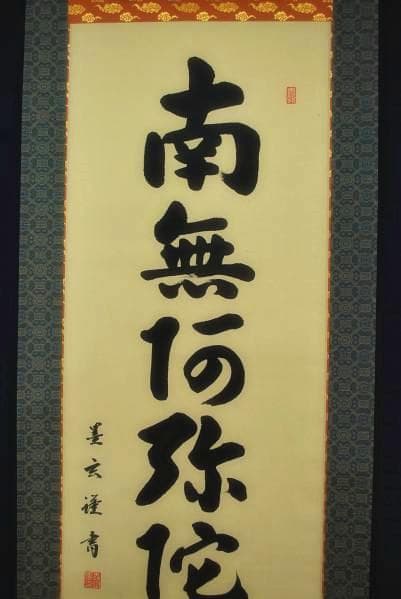 南無阿弥陀
墨玄謹書